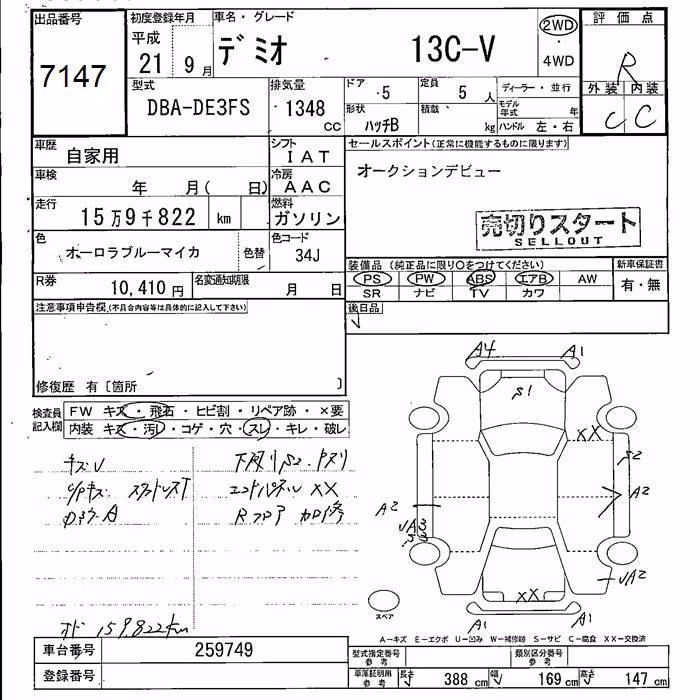 出品番号 初度登録年月 車名・グレード 2WD 評価点
7147 平成 21 9月 デミオ 13C-V 4WD R
型式 排気量 ドア 定員 ディーラー・並行 外装 内装
DBA-DE3FS 1348 CC ・5 5人 モデル年式 年 C C
形状 ハッチB 積載 kg ハンドル 左・右
車歴 自家用 シフト IAT セールスポイント(正常に機能するものに限ります)
車検 年 月( 日) 冷房 AAC オークションデビュー
走行 15万9千822 km 燃料 ガソリン 売切りスタート
SELLOUT
色 オーロラブルーマイカ 色替 色コード 34J
装備品(純正品に限り○をつけてください) 新車保証書
R券 10,410円 名変通知期限 月 日 PS PW ABS エアB AW 有・無
SR ナビ TV カワ
注意事項申告欄(不具合内容等は具体的に記入して下さい) 後日品
修復歴 有〔箇所 〕
A4 A1
S1
検査員記入欄 FW キズ・飛石・ヒビ割・リペア跡・×要
内装 キズ・汚レ・コゲ・穴・スレ・キレ・破レ
XX
キズU 下廻りS2、キズリ S2
エンドパネル XX A2 A2
Rフロア
XX
スペア
A1 A1
オド 159.822km
A-キズ E-エクボ U-凹み W-補修跡 S-サビ C-腐食 XX-交換済
車台番号 259749 型式指定番号 参考 類別区分番号 参考
登録番号 車庫証明用 参考 長さ 388 cm 幅 169 cm 高さ 147 cm